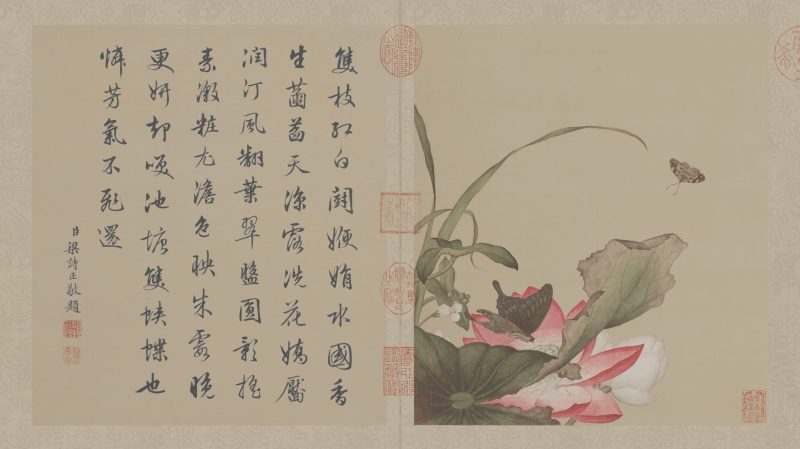 隻枝紅白鬪㛹娟水國香
生菡萏天涼露洗花嬌靨
潤汀風翻葉翠盤圓影搖
素瀲粧尤澹色映朱霞晚
更妍却咲池塘隻蛺蝶也
憐芳氣不飛還
臣梁詩正敬題